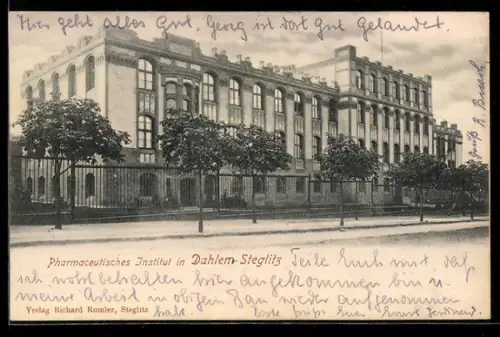 Hier geht alles Gut, Georg ist dort gut gelandet.
Gruß
Pharmaceutisches Institut in Dahlem-Steglitz
Teile Euch mit, daß
ich wohlbehalten hier angekommen bin u.
meine Arbeit in obigem Bau wieder aufgenommen
habe. Euer Ernst Ferdinand.
Verlag Richard Rumler, Steglitz